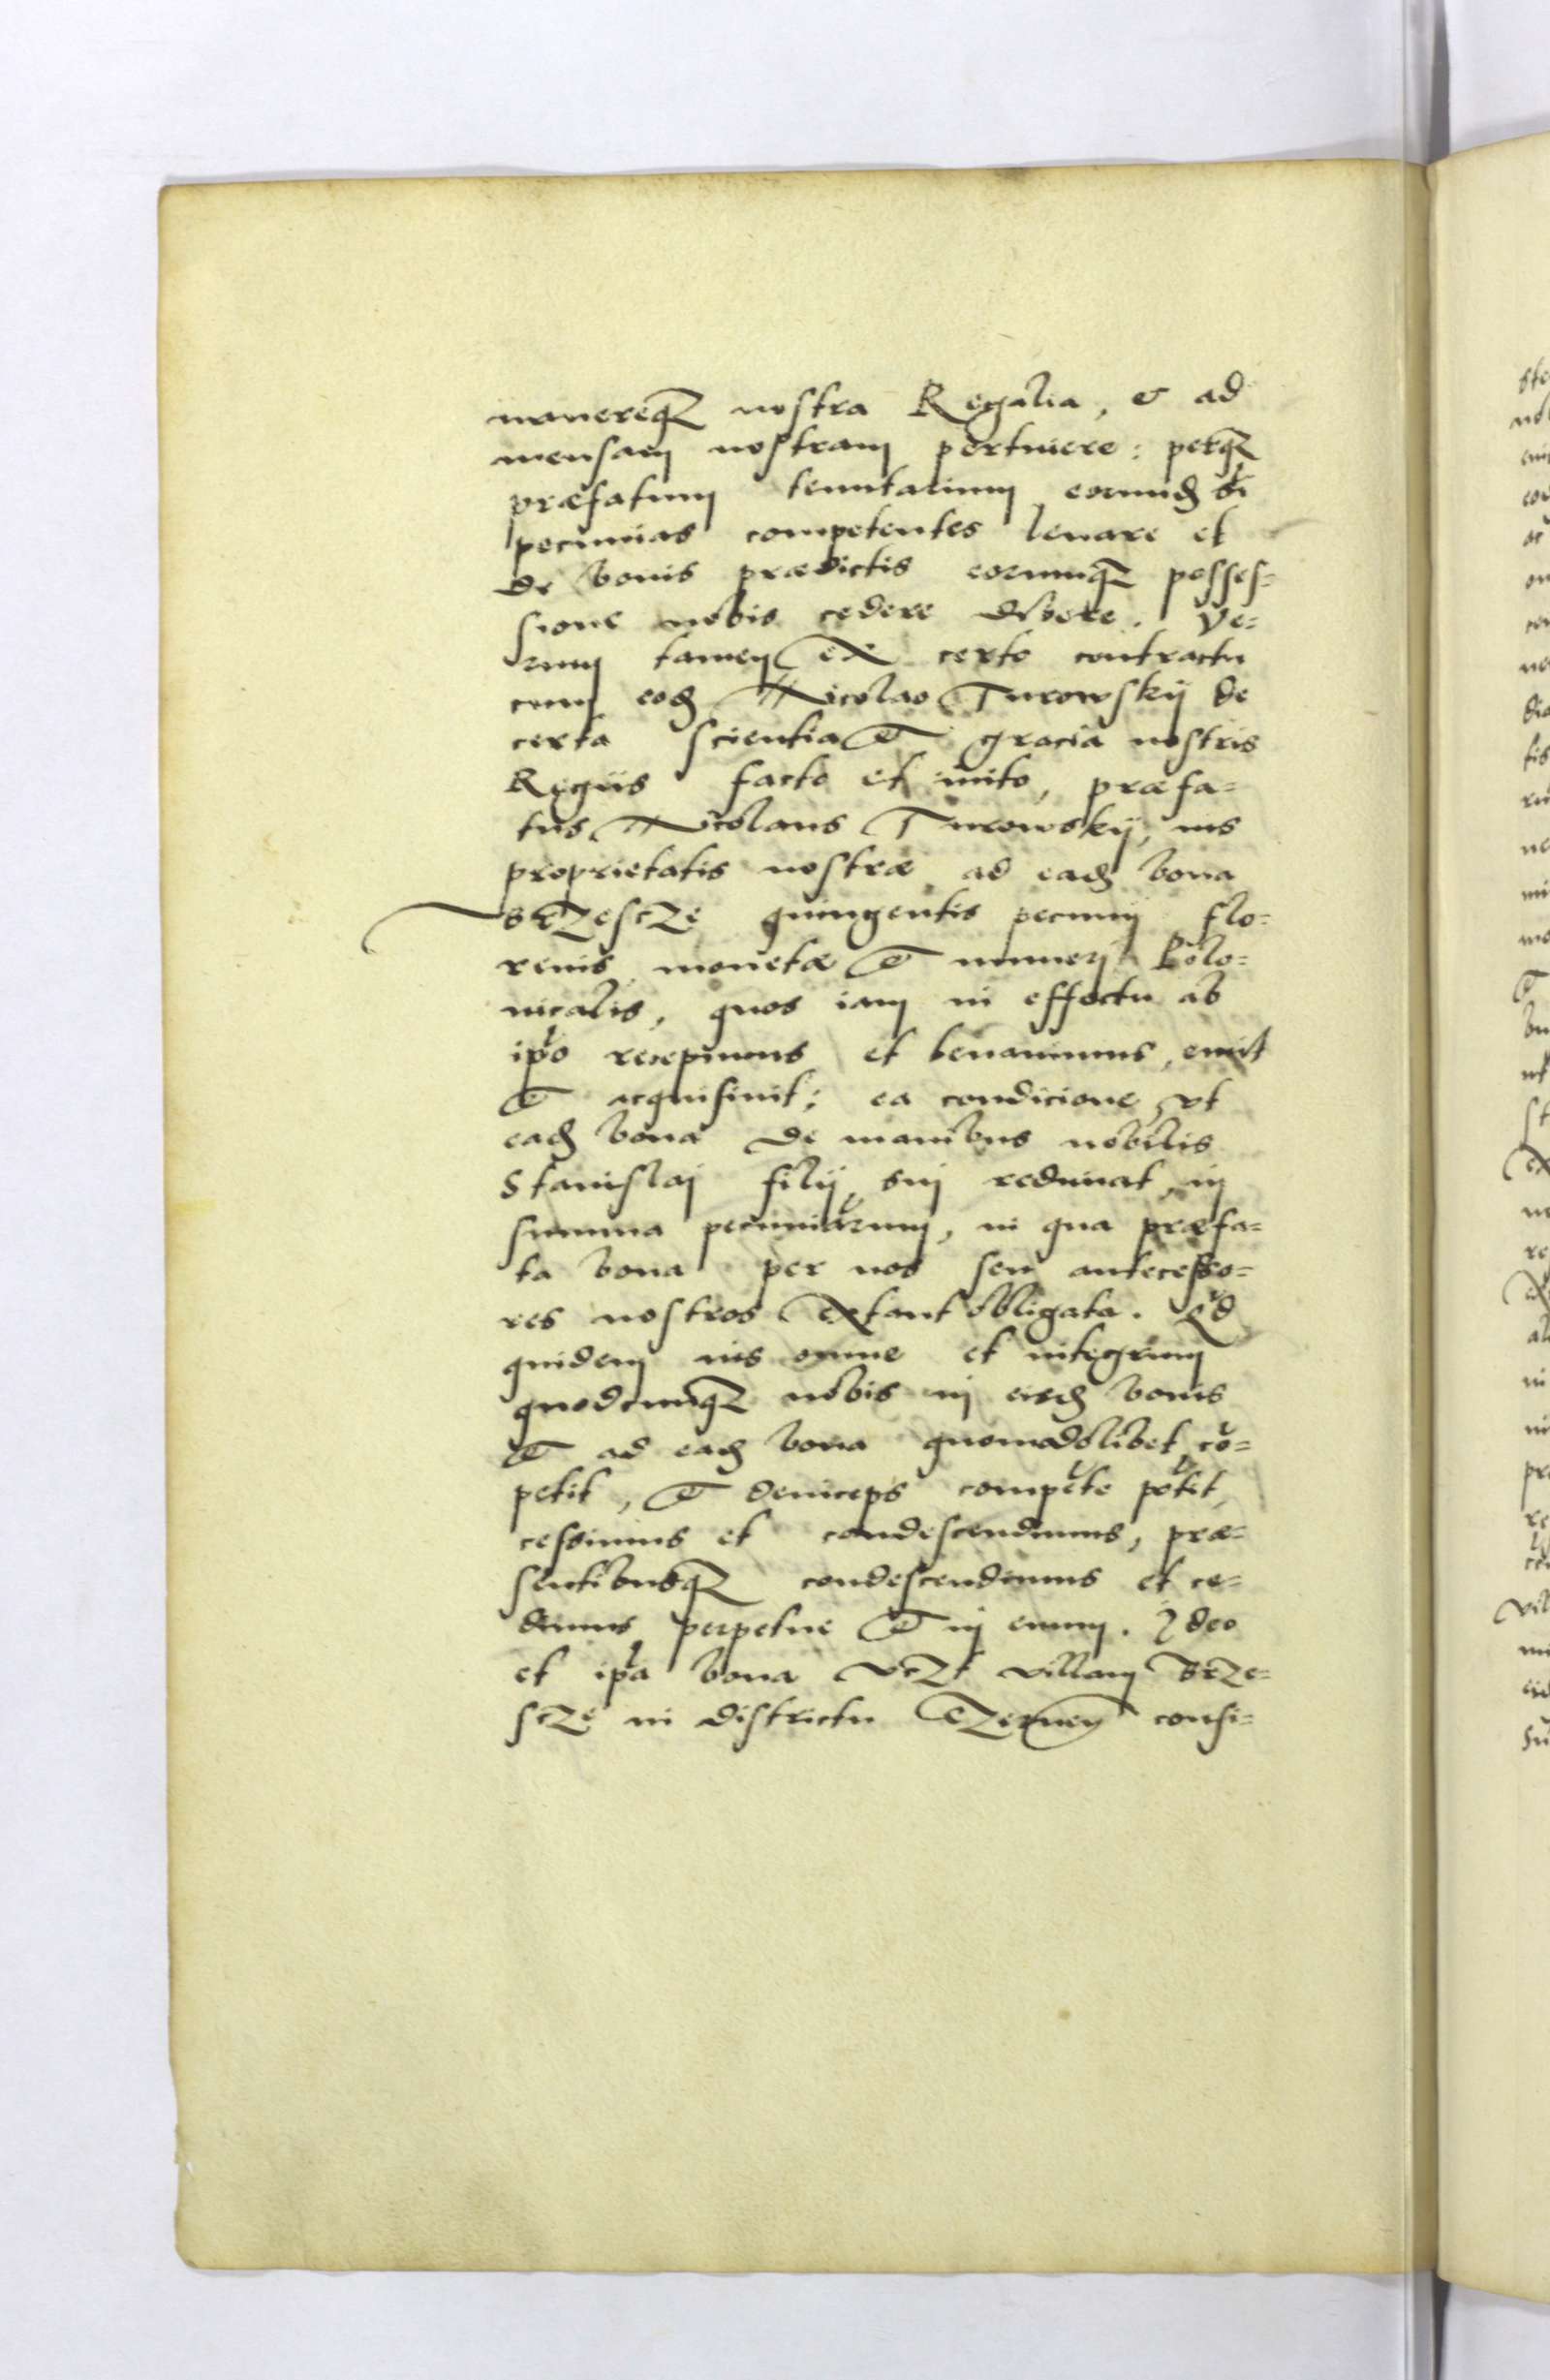 manereq nostra Regalia, & ad
mensam nostram pertinere: perq
præfatum tenutarium eorund sibi
pecunias competentes leuare et
de bonis prædictis eorumq posses=
sione nobis cedere debere. Ve=
rum tamen ex certo contractu
cum eod Nicolao Turowskij de
certa scientia & gracia nostris
Regiis facto et inito, præfa=
tus Nicolaus Turowskij, ius
proprietatis nostræ ad ead bona
Brzescze quingentis pecunij flo=
renis monetæ & numerj Polo=
nicalis, quos iam in effectu ab
ipso recepimus et leuauimus, emit
& acquisiuit; ea condicione, vt
ead bona de manibus nobilis
Stanislaj filij sui redimat, in
summa pecuniarum, in qua præfa=
ta bona per nos seu antecesso=
res nostros extant obligata. Qd
quidem ius omne et integrum
quodcunq nobis in eisd bonis
& ad ead bona quomodolibet co=
petit, & deinceps competere poterit,
cessimus et condescendimus, præ=
sentibusq condescendimus et ce=
dimus perpetue & in euum. Ideo
et ipsa bona vczt villam Brze=
scze in districtu Czernen consi=
ste